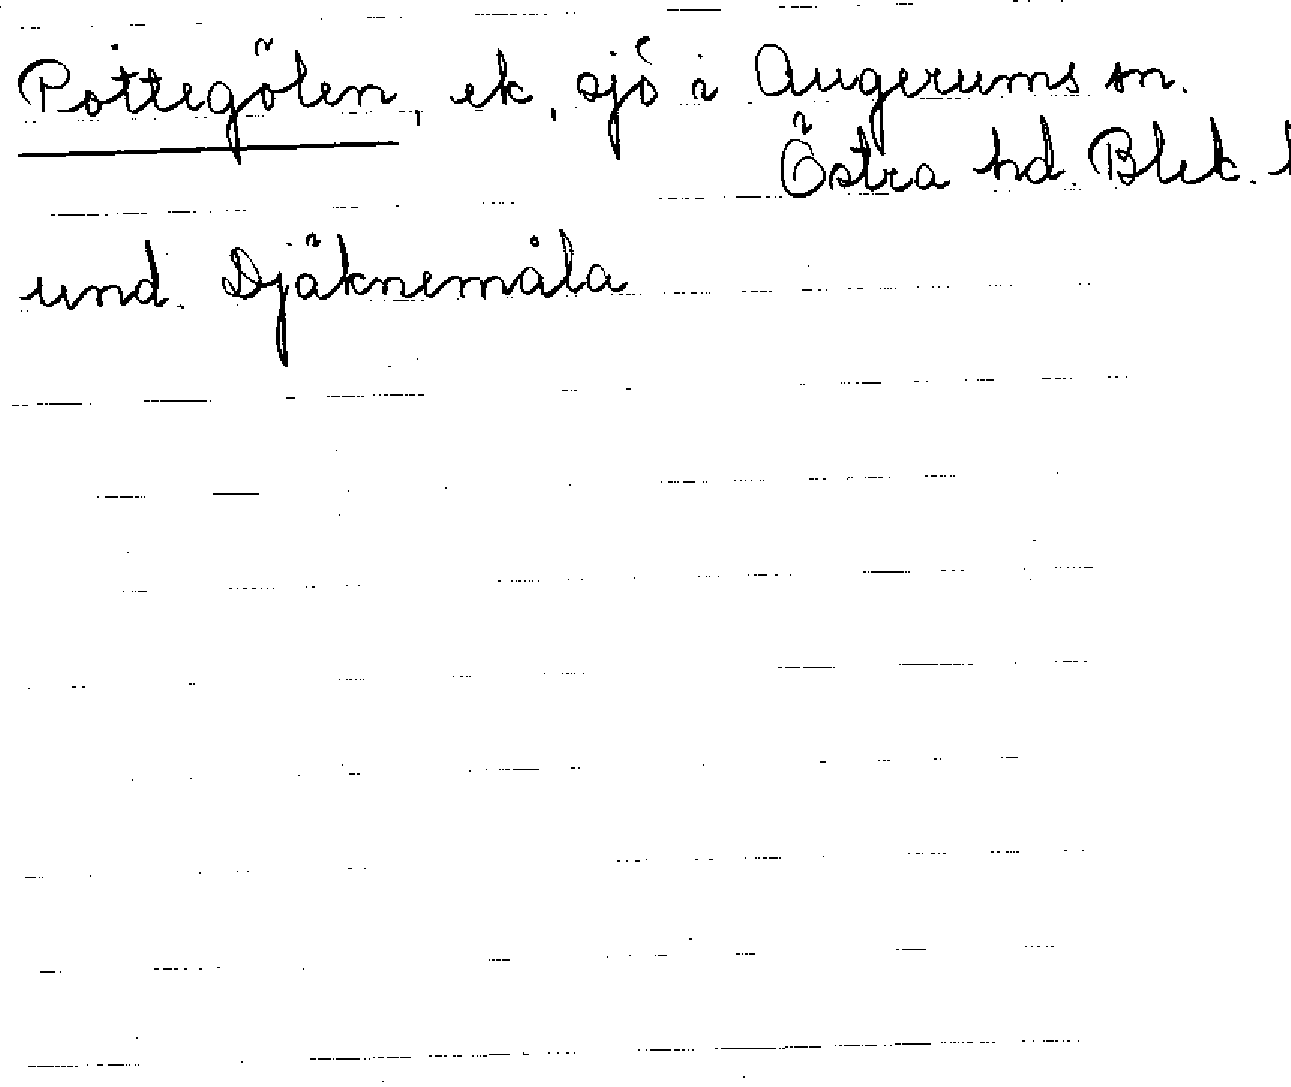 Pottegölen, ek, sjö i Augerums sn.
Östra hd. Blek. l
und. Djäknemåla